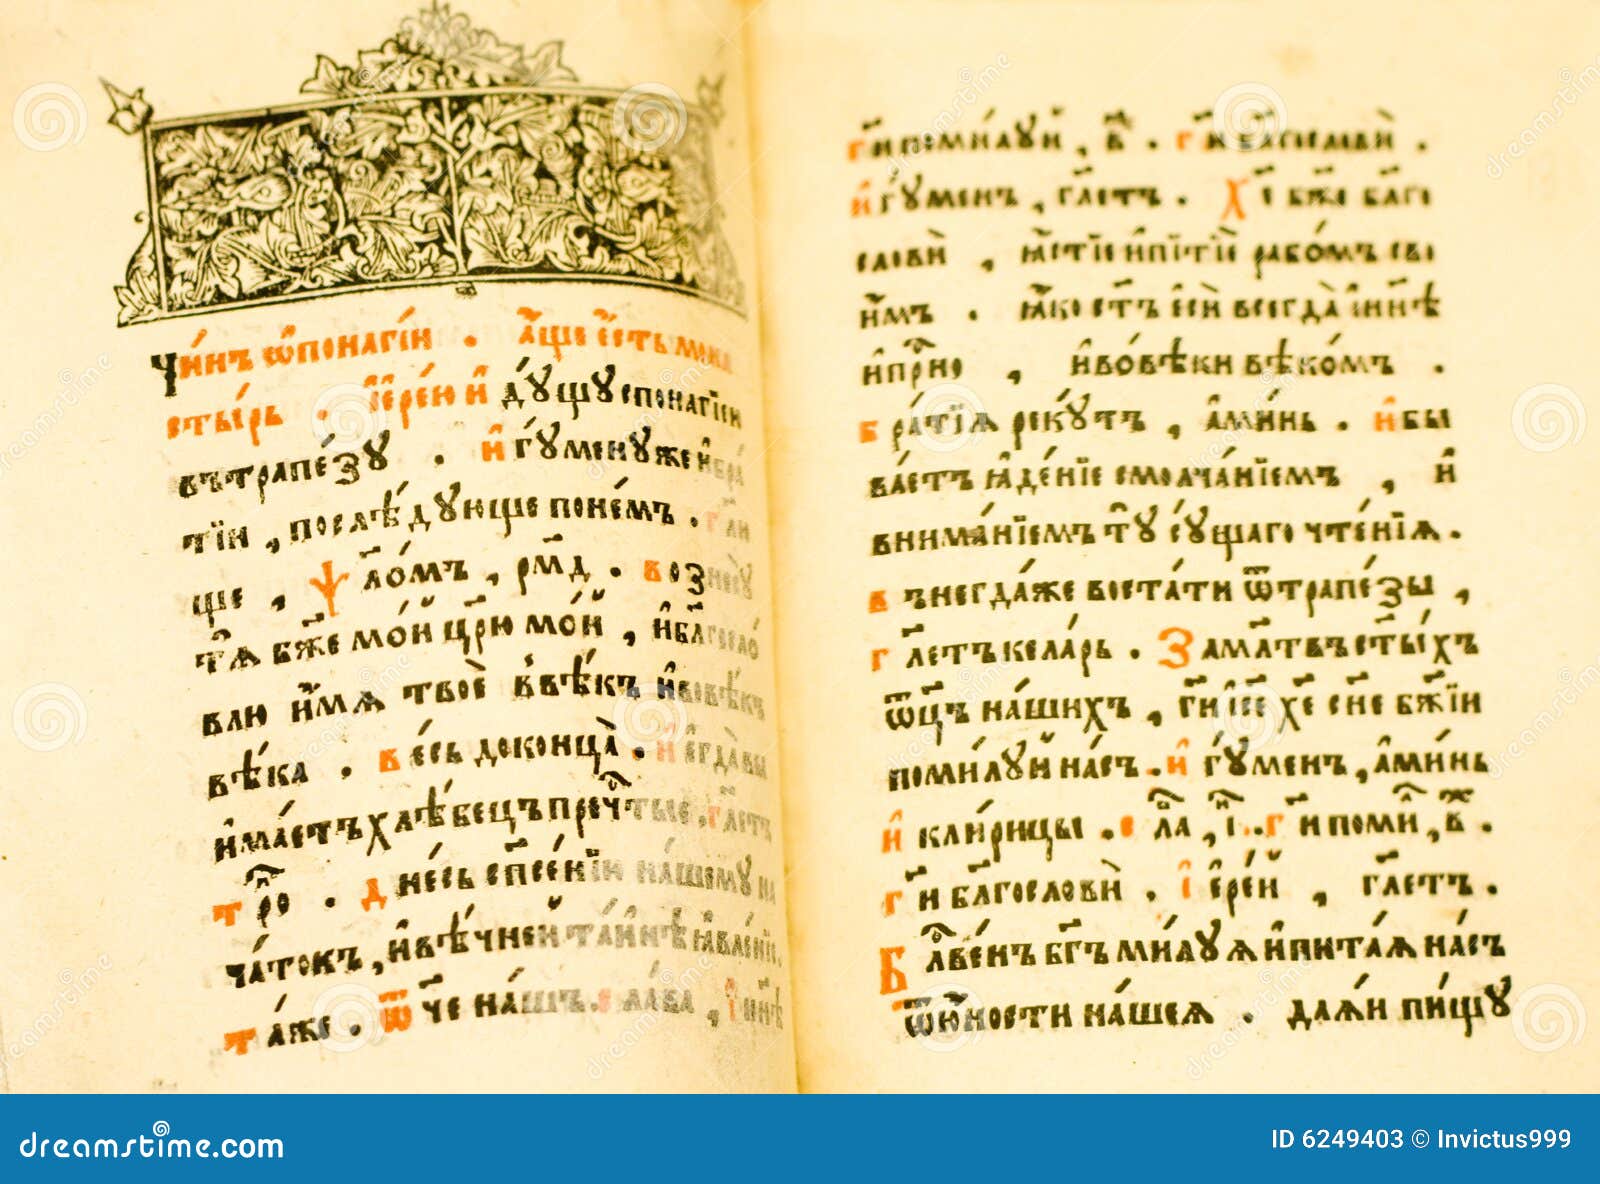 Чи́нъ ѡ҆ понагі́и . а҆́ще є҆́сть мона
сты́рь . і҆ере́ю и҆ дꙋ́щꙋ с понагіеи
въ трапе́зꙋ . и҆гꙋменꙋ же и҆ бра́
тїи , послѣ́дꙋюще по не́мъ . гл҃и
ще , ѱ҃ло́мъ , рм҃д . возне́сꙋ
тѧ̀ бж҃е мо́й цр҃ю мо́й , и҆ бл҃госло́
влю и҆́мѧ твоѐ в вѣ́къ и҆ во вѣ́къ
вѣ́ка . ве́сь до конца̀ . и҆ є҆гда̀ вы
и҆ма́етъ хлѣ́бецъ преч҇тые , гл҃етъ
тро . дне́сь сп҃се́нїи на́шемꙋ на
ча́токъ , и҆ вѣ́чней та́йнѣ ꙗ҆вле́нїе .
та́же . ѿч҃е на́шъ . сла́ва , і҆ ны́нѣ
гд҃и поми́лꙋй , в҃ . гд҃и бл҃гослови̂ .
и҆гꙋ́менъ , гл҃етъ . Хе бж҃е бл҃го
слови̂ , ꙗ҆́стїе и҆ питїѐ рабо́мъ сво
и҆́мъ . ꙗ҆́ко ст҃ъ є҆сѝ всегда̀ и҆ н҃нѣ
и҆ пр҇но , и҆ во вѣ́ки вѣко́мъ .
бра́тїѧ рекꙋ́тъ , а҆ми́нь . и҆ бы
ва́етъ ꙗ҆де́нїе с молча́нїемъ , и҆
внима́нїемъ тꙋ̀ сꙋ́щаго чте́нїѧ .
внегда́ же воста́ти ѿ трапе́зы ,
гл҃етъ кела́рь . За мл҃твъ ст҃ы́хъ
ѿц҃ъ на́шихъ , гд҃и і҆с҃е х҃е сн҃е бж҃їи
поми́лꙋй на́съ . и҆гꙋ́менъ , а҆ми́нь
и҆ кли́рицы . сла , і҆ . . гд҃и поми , в҃ .
гд҃и бл҃гословѝ . і҆ере́й , гл҃етъ .
Блг҃ве́нъ бг҃ъ ми́лꙋѧ и҆ пита́ѧ на́съ
ѿ ю҆́ности на́шеѧ . даѧ́и пи́щꙋ
dreamstime.com
ID 6249403 © Invictus999